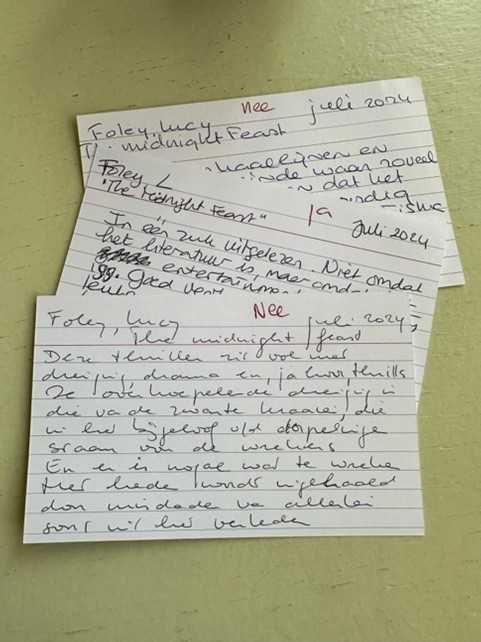 Nee juli 2024
Foley, Lucy
midnight Feast
haallijnen en
waar zoveel
dat het
Foley L ja Juli 2024
"The Midnight Feast"
In één ruk uitgelezen. Niet omdat
het literatuur is, maar omd
entertainm
gg. goed
leuk
Foley, Lucy Nee juli 2024
The midnight feast
Deze thriller zit vol met
dreiging, drama en, ja hoor, thrills
De overkoepelende dreiging is
die va de zwarte kraaien, die
in het bijgeloof v/d dorpelingen
staan voor de wrekers
En er is nogal wat te wreken
Het heden wordt ingehaald
door misdaden va allerlei
soort uit het verleden